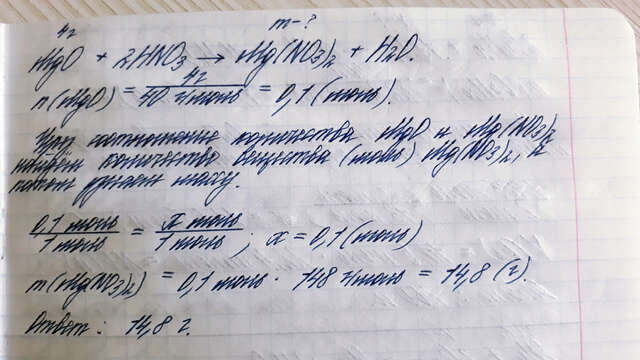 4г m-?
MgO + 2HNO₃ → Mg(NO₃)₂ + H₂O.
n(MgO) = 4г / 40 г/моль = 0,1 (моль).
соотношение количества MgO и Mg(NO₃)₂
найдем количество вещества (моль) Mg(NO₃)₂, а
потом массу.
0,1 моль / 1 моль = x моль / 1 моль ; x = 0,1 (моль)
m(Mg(NO₃)₂) = 0,1 моль · 148 г/моль = 14,8 (г).
Ответ: 14,8 г.